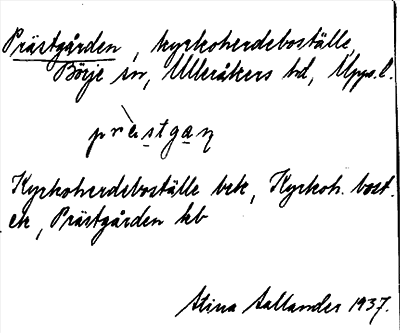 Prästgården, kyrkoherdeboställe,
Börje sn, Ulleråkers hd, Upps.l.
prɛ̀stgaɳ
Kyrkoherdeboställe bek, Kyrkoh. bost.
ek, Prästgården kb
Stina Sallander 1937.